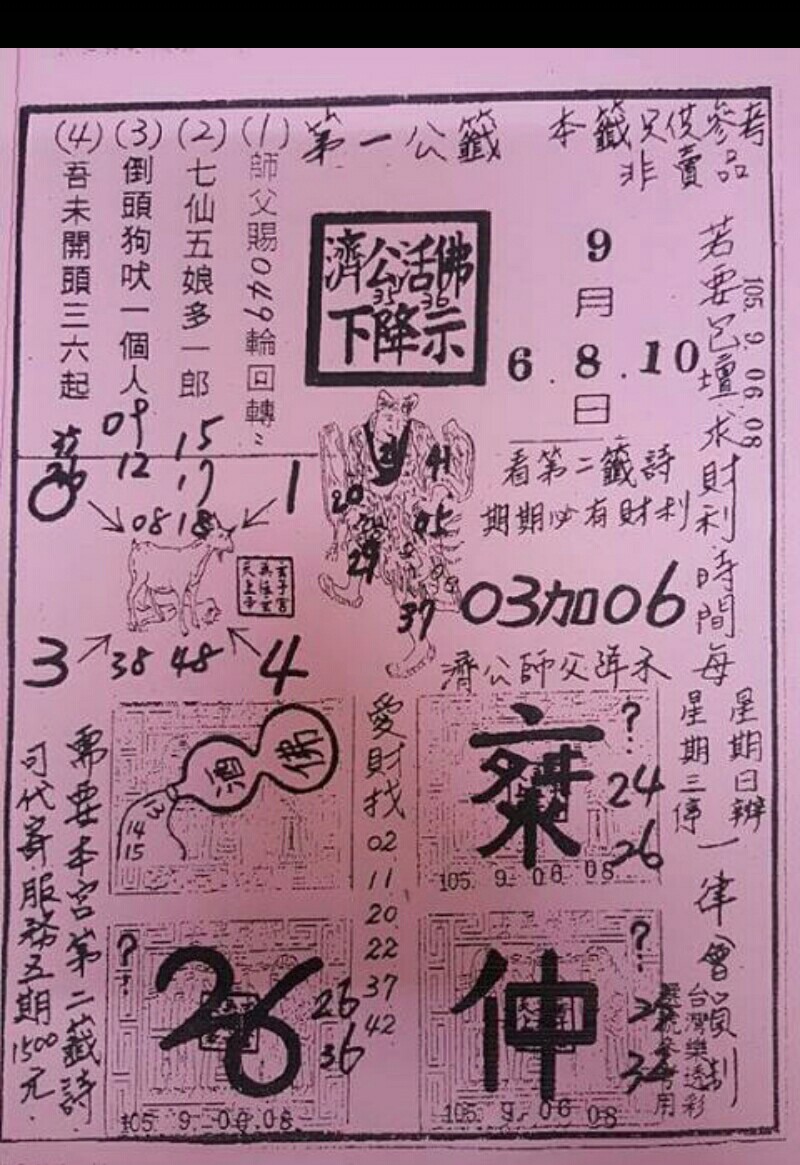 本籤只供參考
非賣品
第一公籤
(1)師父賜049輪回轉
(2)七仙五娘多一郎
(3)倒頭狗吠一個人
(4)吾未開頭三六起
濟公活佛
35 36
下降示
9
月
6.8.10
日
105. 9. 06 08
若要已壇求財利時間每
星期日辦
星期三停
一律會員制
看第二籤詩
期期必有財利
03加06
濟公師父降示
09
12
15
17
08 18
1
0
3
38 48
4
20
41
05
29
37
愛財找
02
11
20
22
37
42
佛
酒
14
15
?
24
26
105. 9. 06 08
?
26
26
36
105. 9. 06. 08
?
仲
34
105. 9. 06 08
台灣樂透彩
選號參考用
需要本宮第二籤詩
可代寄.服務五期1500元.